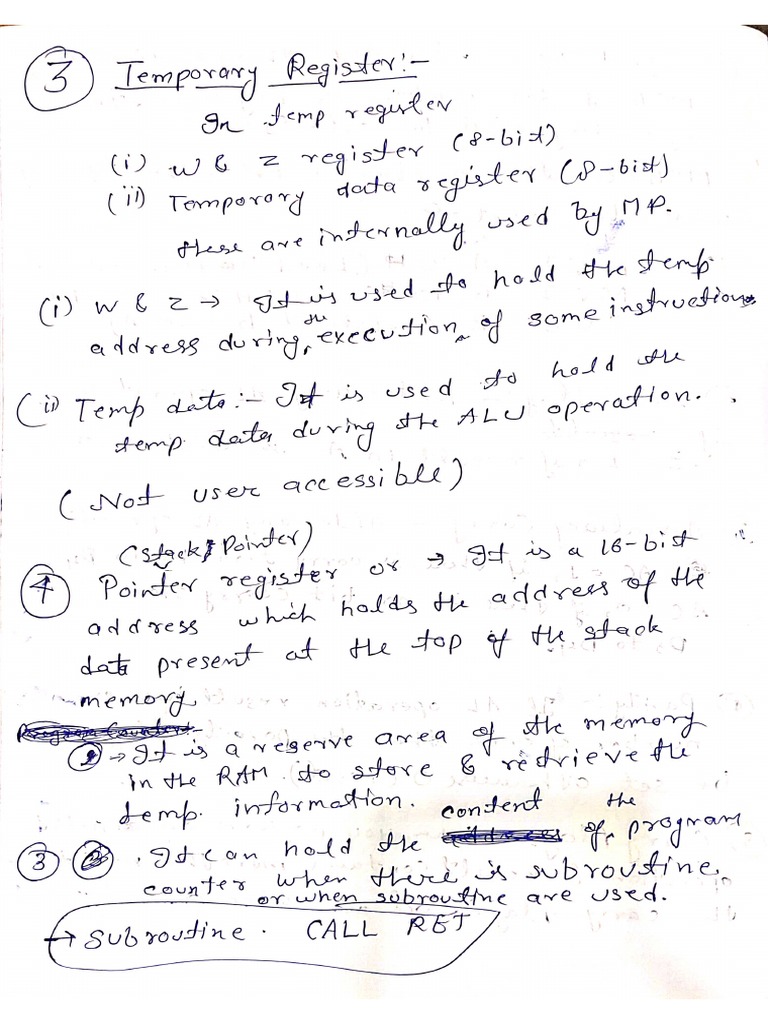 3 Temporary Register:-
In temp register
(i) W & Z register (8-bit)
(ii) Temporary data register (8-bit)
these are internally used by MP.
(i) W & Z → It is used to hold the temp
address during the execution of some instructions
(ii) Temp data:- It is used to hold the
temp data during the ALU operation.
(Not user accessible)
(Stack Pointer)
4 Pointer register or → It is a 16-bit
address which holds the address of the
data present at the top of the stack
memory
→ It is a reserve area of the memory
in the RAM to store & retrieve the
temp. information.
3 It can hold the content of the program
counter when there is subroutine
or when subroutine are used.
→ Subroutine. CALL RET